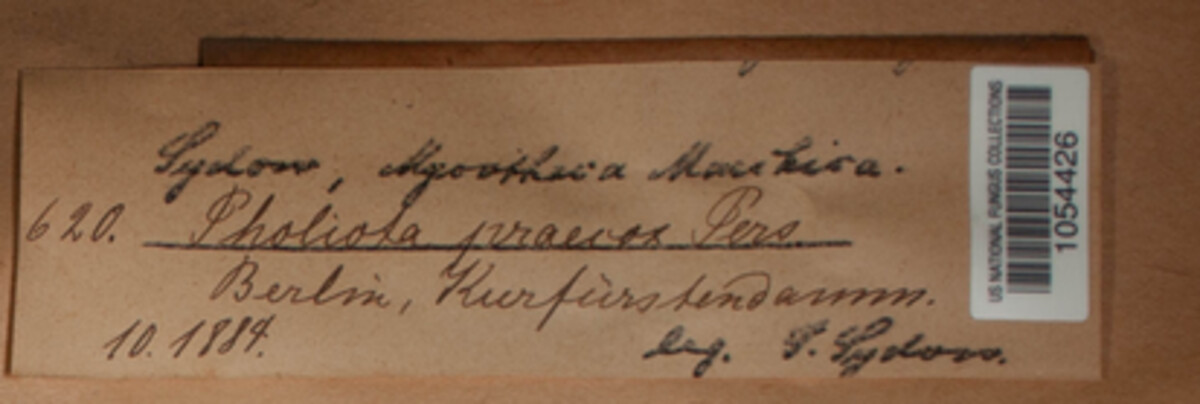 Sydow, Mycotheca Marchica.
620. Pholiota praecox Pers.
Berlin, Kurfürstendamm.
10. 1884.
leg. P. Sydow.
US NATIONAL FUNGUS COLLECTIONS
1054426